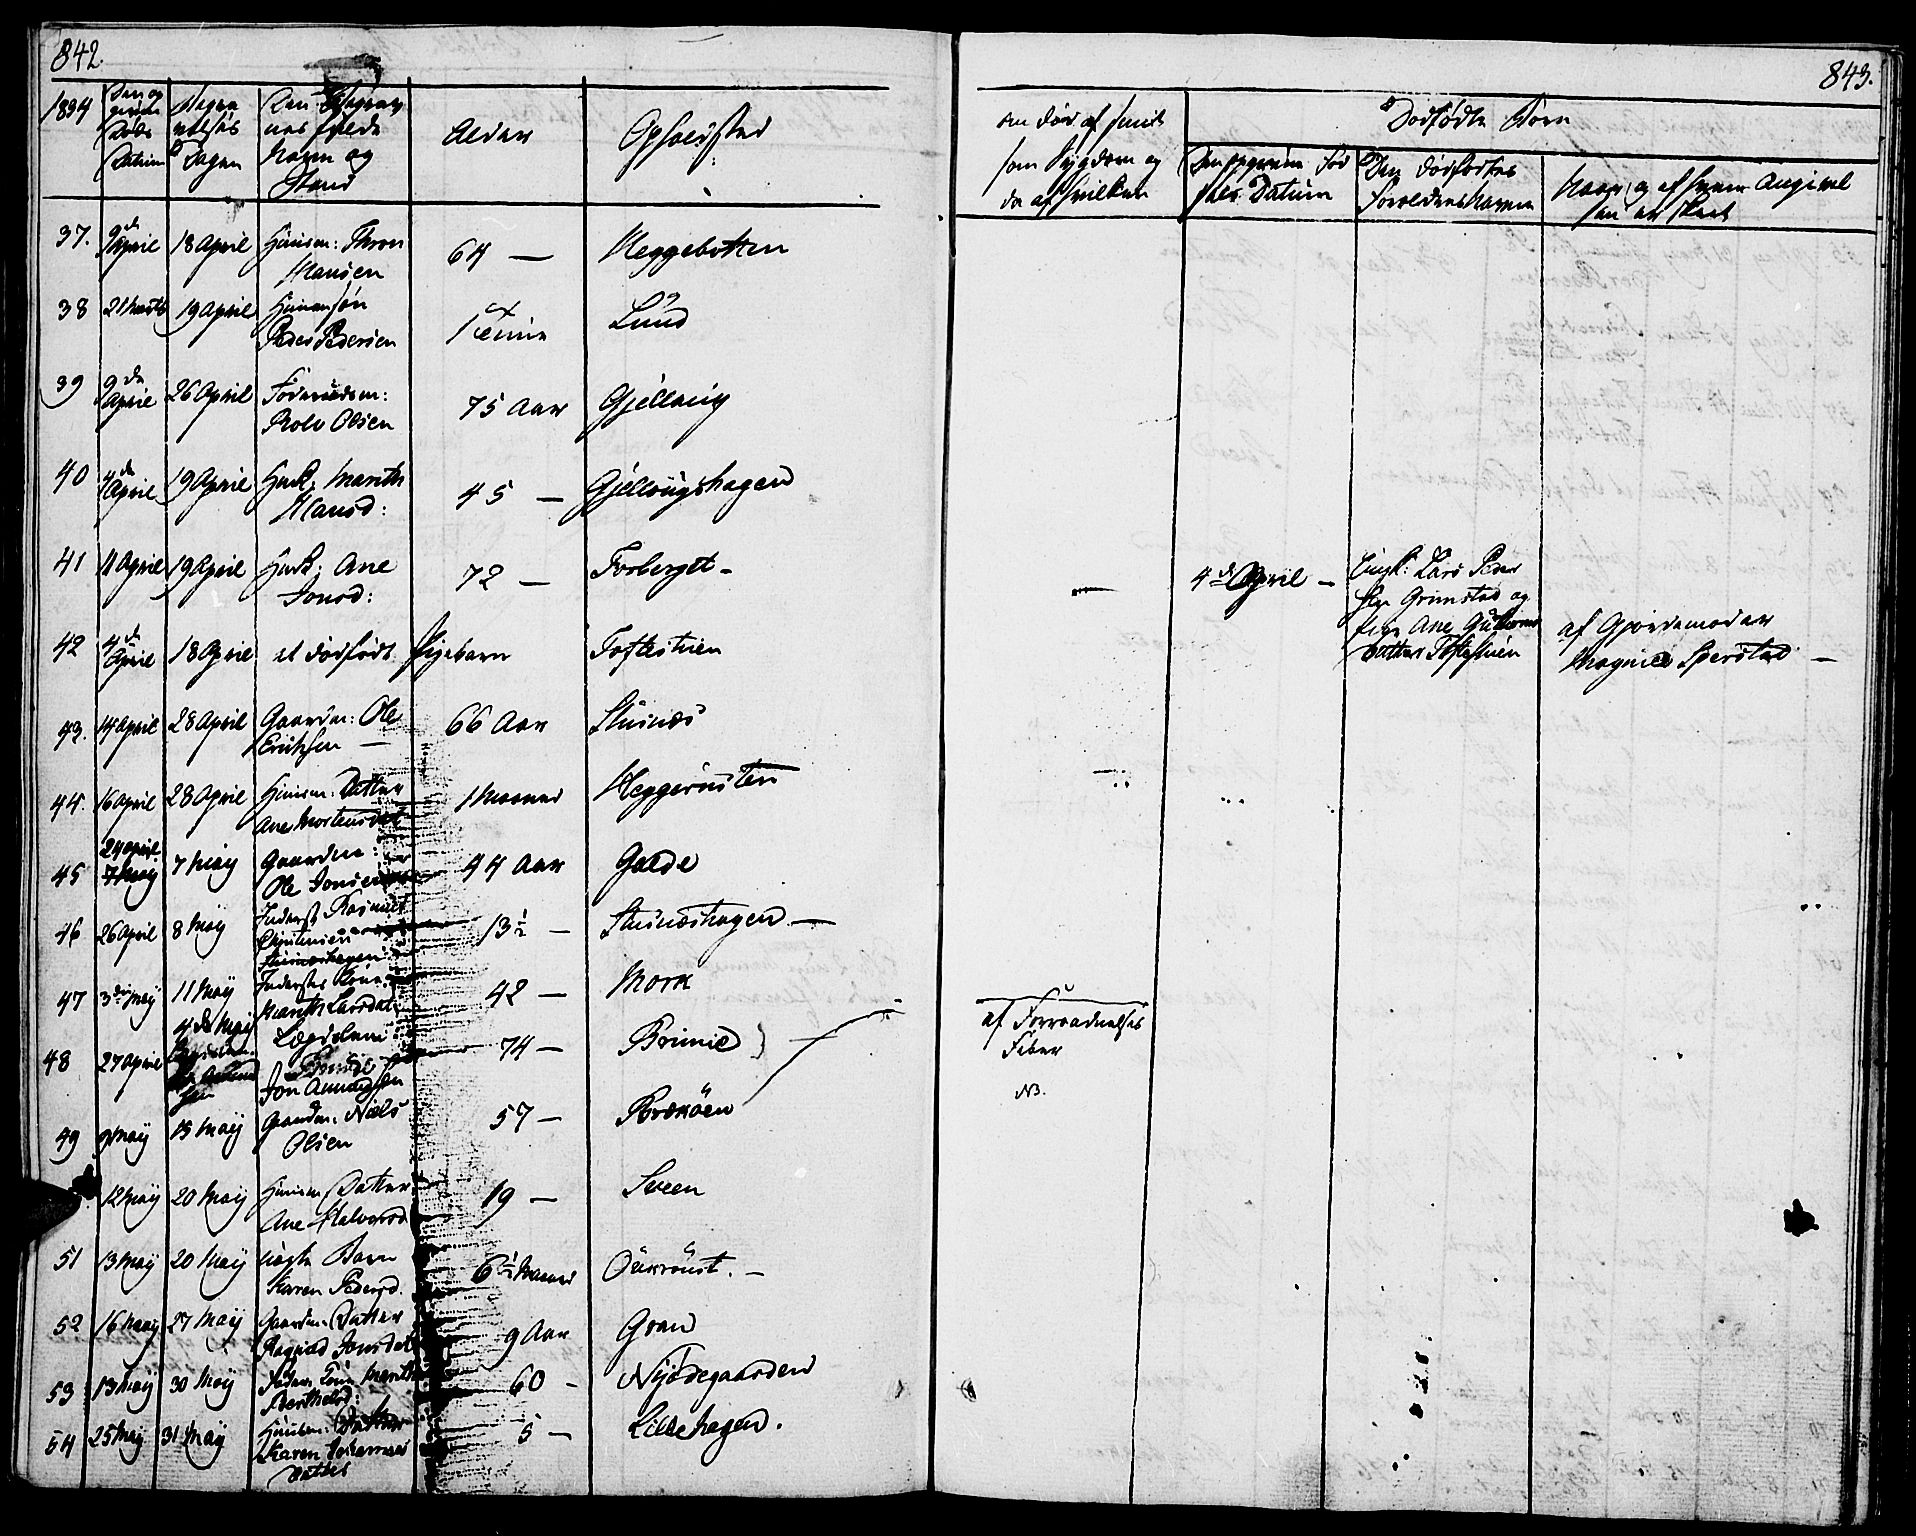 842.
1834
Den og
Døds
Datum
Begra
velses
Dagen
Den Begrav
nes fulde
Navn og
Stand
Alder
Opholdssted
37. 9de April 18 April Huusm: Thron Hansen 64 — Heggebotten
38 21 Marts 19 April Huusm. søn Peder Pedersen 1 Lund
39 9de April 26 April Føderaadsm: Rolv Olsen 75 Aar Gjellaug
40 4de April 19 April Husk: Marith Hansd: 45 — Gjellougshagen
41 11 April 19 April Husk: Ane Jonsd: 72 — Forberget -
42 4de April 18 April et dødfødt Pigebarn Toftestuen
43. 14 April 28 April Gaardm: Ole Erichsen — 66 Aar Stusnæs
44. 16 April 28 April Huusm: Datter Ane Mortensdat 1 Maaned Heggerusten
45 24 April 7 May 7 May Gaardm: Ole Jonsen 44 Aar Galde
46 26 April 8 May Inderst Rasmus Christensen Stusneshagen 13½ — Stusnæshagen —
47 3de May 11 May Inderstes Kone Marith Larsdat 42 — Mork
48 27 April 4de May Lægdslem Jon Amundsen 74 — Brimie
49 9 May 15 May Gaardm. Niels Olsen 57 — Bræköen
12 May 20 May Huusm Datter Ane Halvorsd 19 — Sveen
51 13 May 20 May uægte Barn Karen Pedersd. 6½ Maaned Öükrüst. —
52 16 May 27 May Gaardm. Datter Ragnild Jonsdat 9 Aar Gran
53 13 May 30 May Inders Kone Marith Berthelsd: 60 - Nÿödegaarden
54 25 May 31 May Huusm: Datter Karen Johannes datter 5 — Lillehagen.
843.
om død af
som Sygdom og
da af hvilken
Dødfødte Børn
Den opgivne Fød
sels Datum
Den Dødfødtes
Forældres Navne
Navn og af hvem Angivel
sen er skeet
— 4de April — Ungk: Lars Peder
sen Grimstad og
Pige Ane Guttorms
datter Toftestuen
af Gjordemoder
Magnild Sperstad —
af Forraadnelses
Feber
NB.